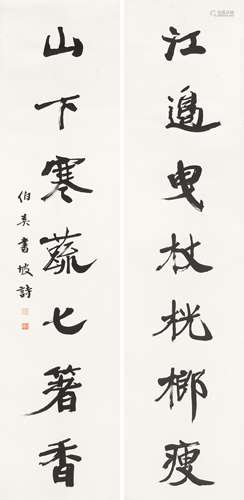 江邊曳杖桄榔瘦
山下寒蔬七箸香
伯英書坡詩